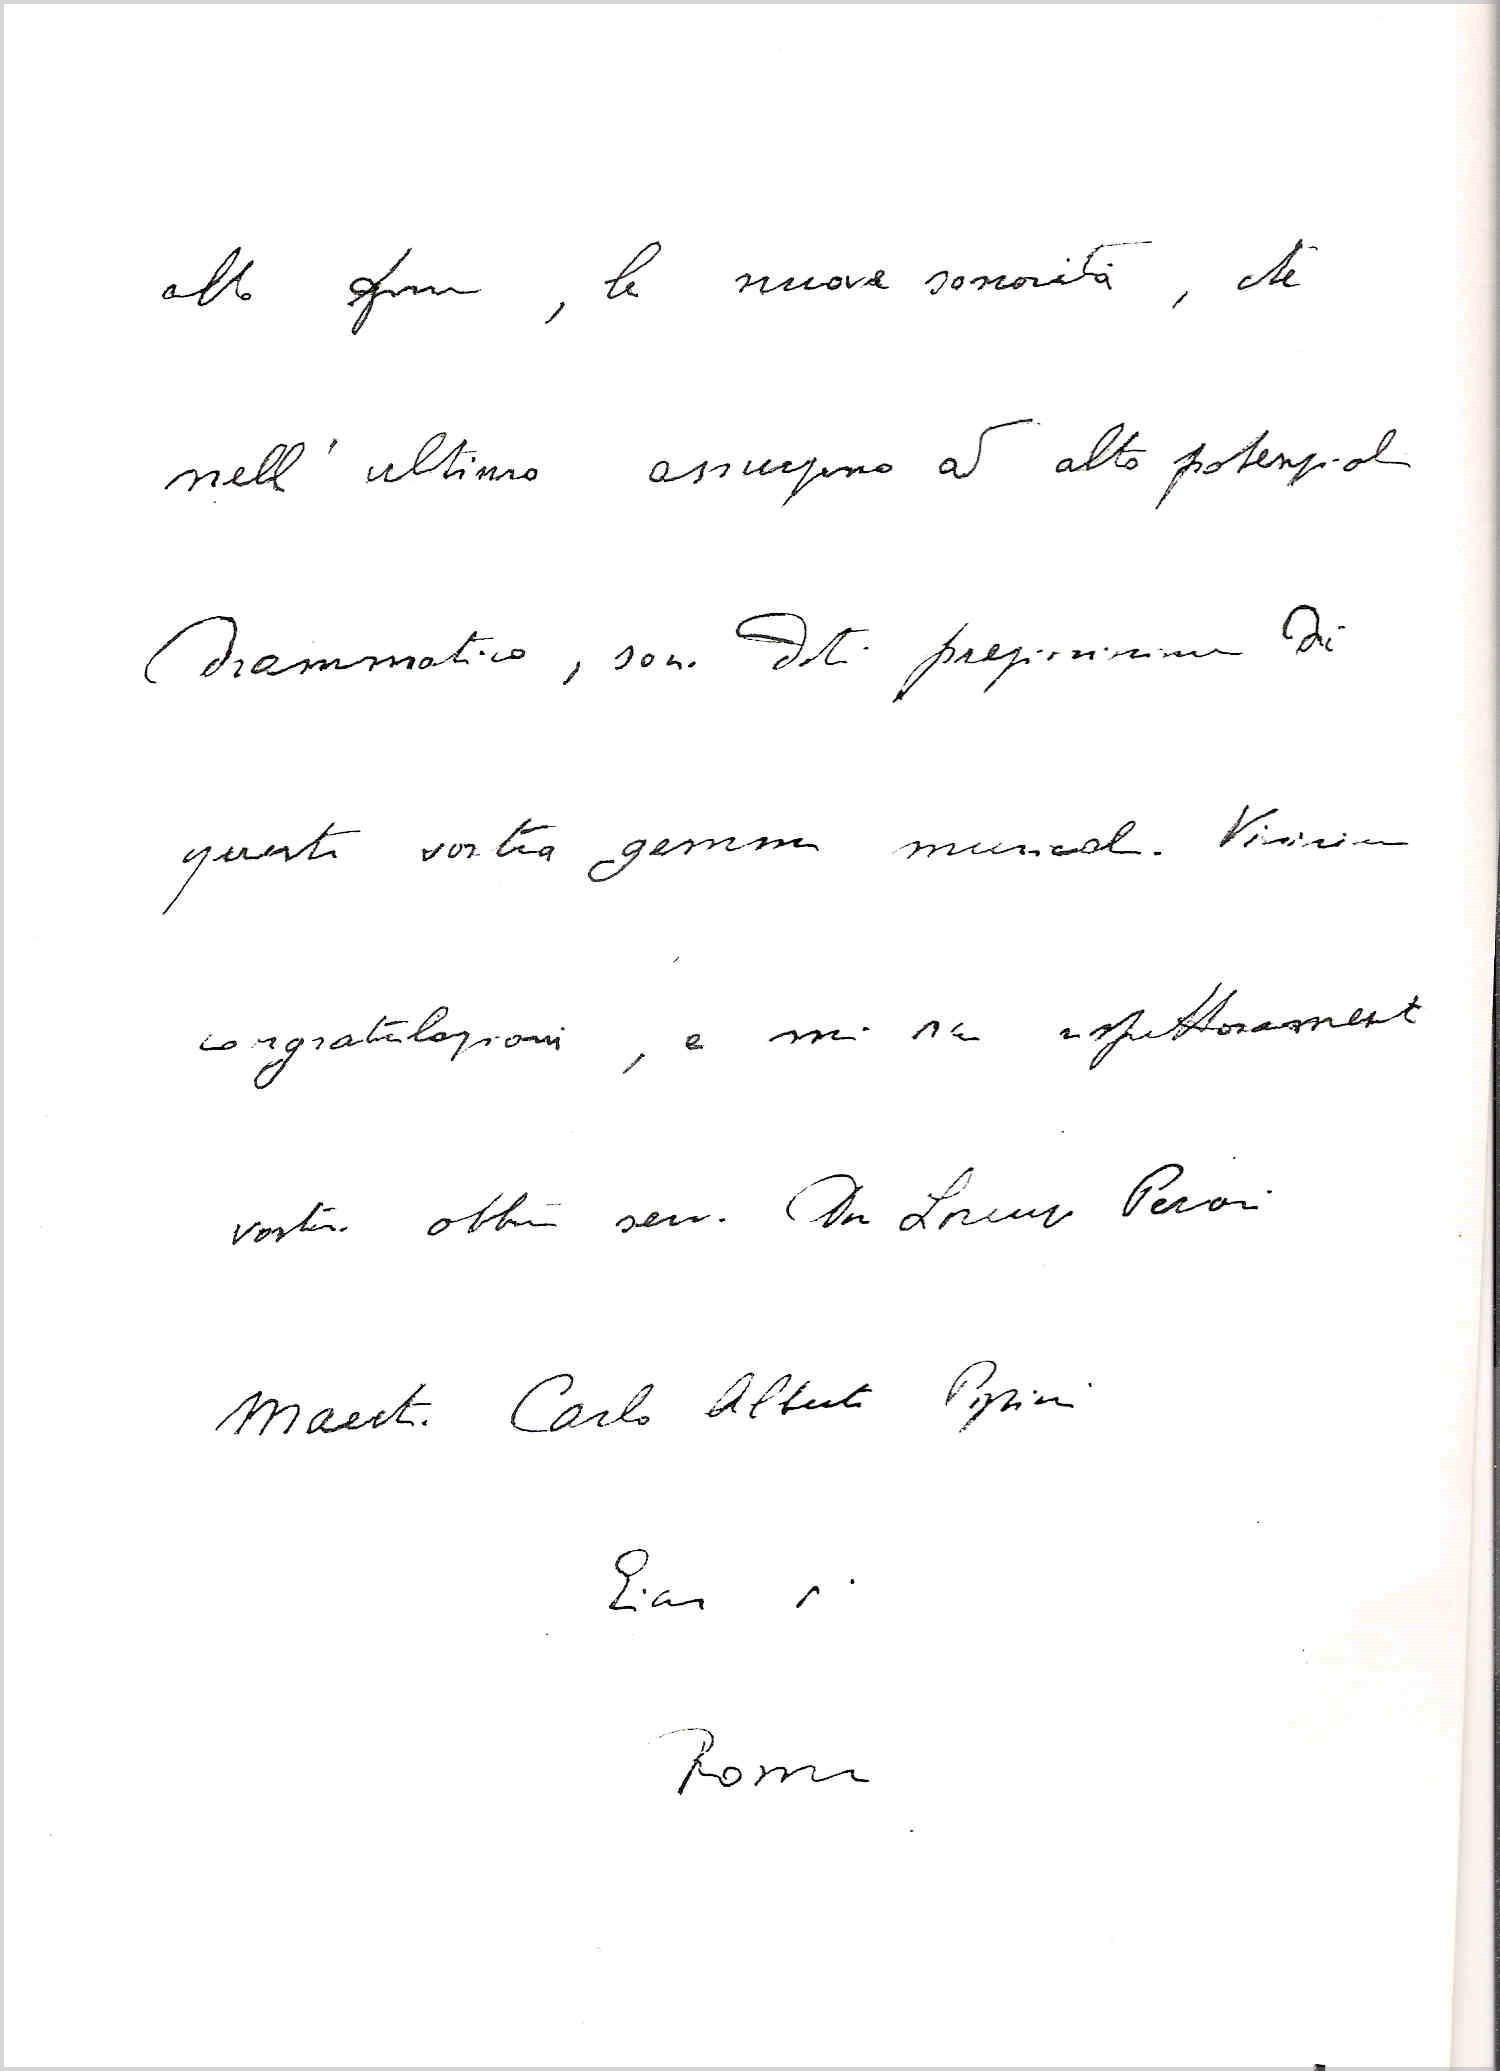 alla fine, le nuove sonorità, che
nell'ultimo assurgono ad alto potenziale
drammatico, sono doti preziosissime di
questa vostra gemma musicale. Vivissime
congratulazioni, e mi sia rispettosamente
vostro obbmo serv. Don Lorenzo Perosi
Maestro Carlo Alberto Pizzini
Eiar
Roma